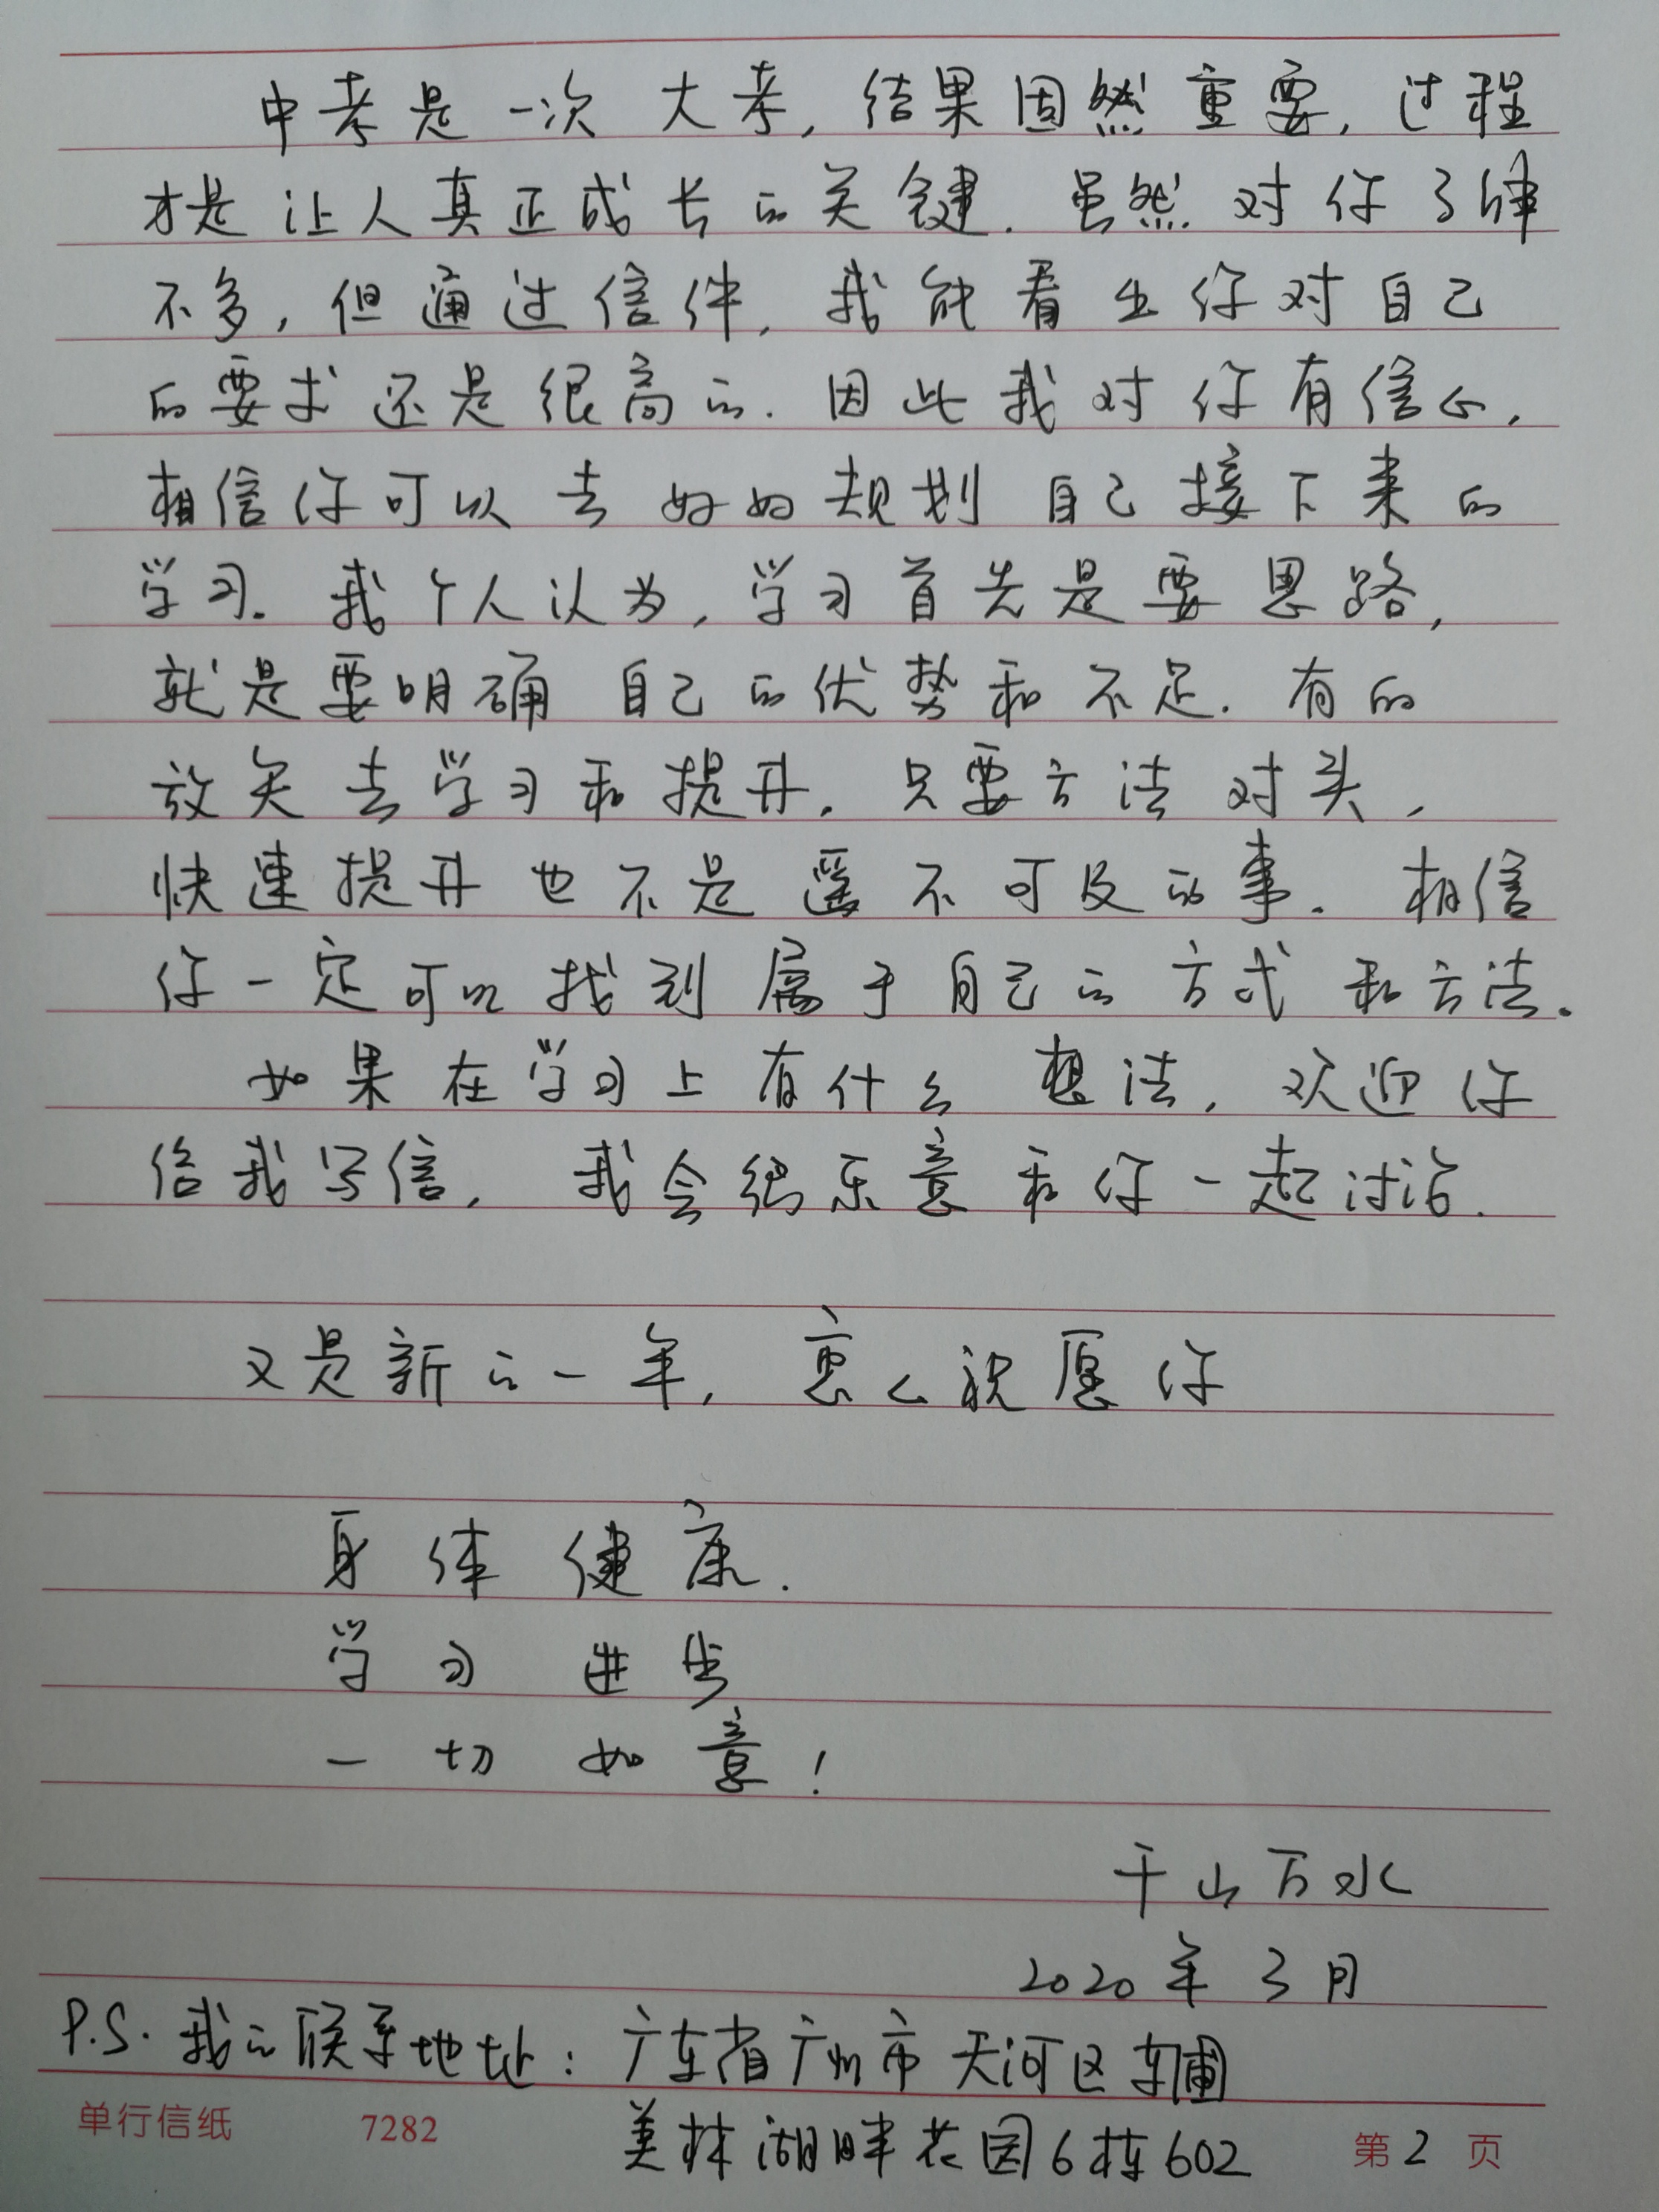 中考是一次大考，结果固然重要，过程
才是让人真正成长的关键．虽然对你了解
不多，但通过信件，我能看出你对自己
的要求还是很高的．因此我对你有信心，
相信你可以去好好规划自己接下来的
学习。我个人认为，学习首先是要思路，
就是要明确自己的优势和不足．有的
放矢去学习和提升．只要方法对头，
快速提升也不是遥不可及的事．相信
你一定可以找到属于自己的方式和方法。
如果在学习上有什么想法，欢迎你
给我写信，我会很乐意和你一起讨论．
又是新的一年，衷心祝愿你
身体健康．
学习进步
一切如意！
千山万水
2020年3月
P.S.我的联系地址：广东省广州市天河区车陂
美林湖畔花园6栋602
单行信纸 7282 第2页